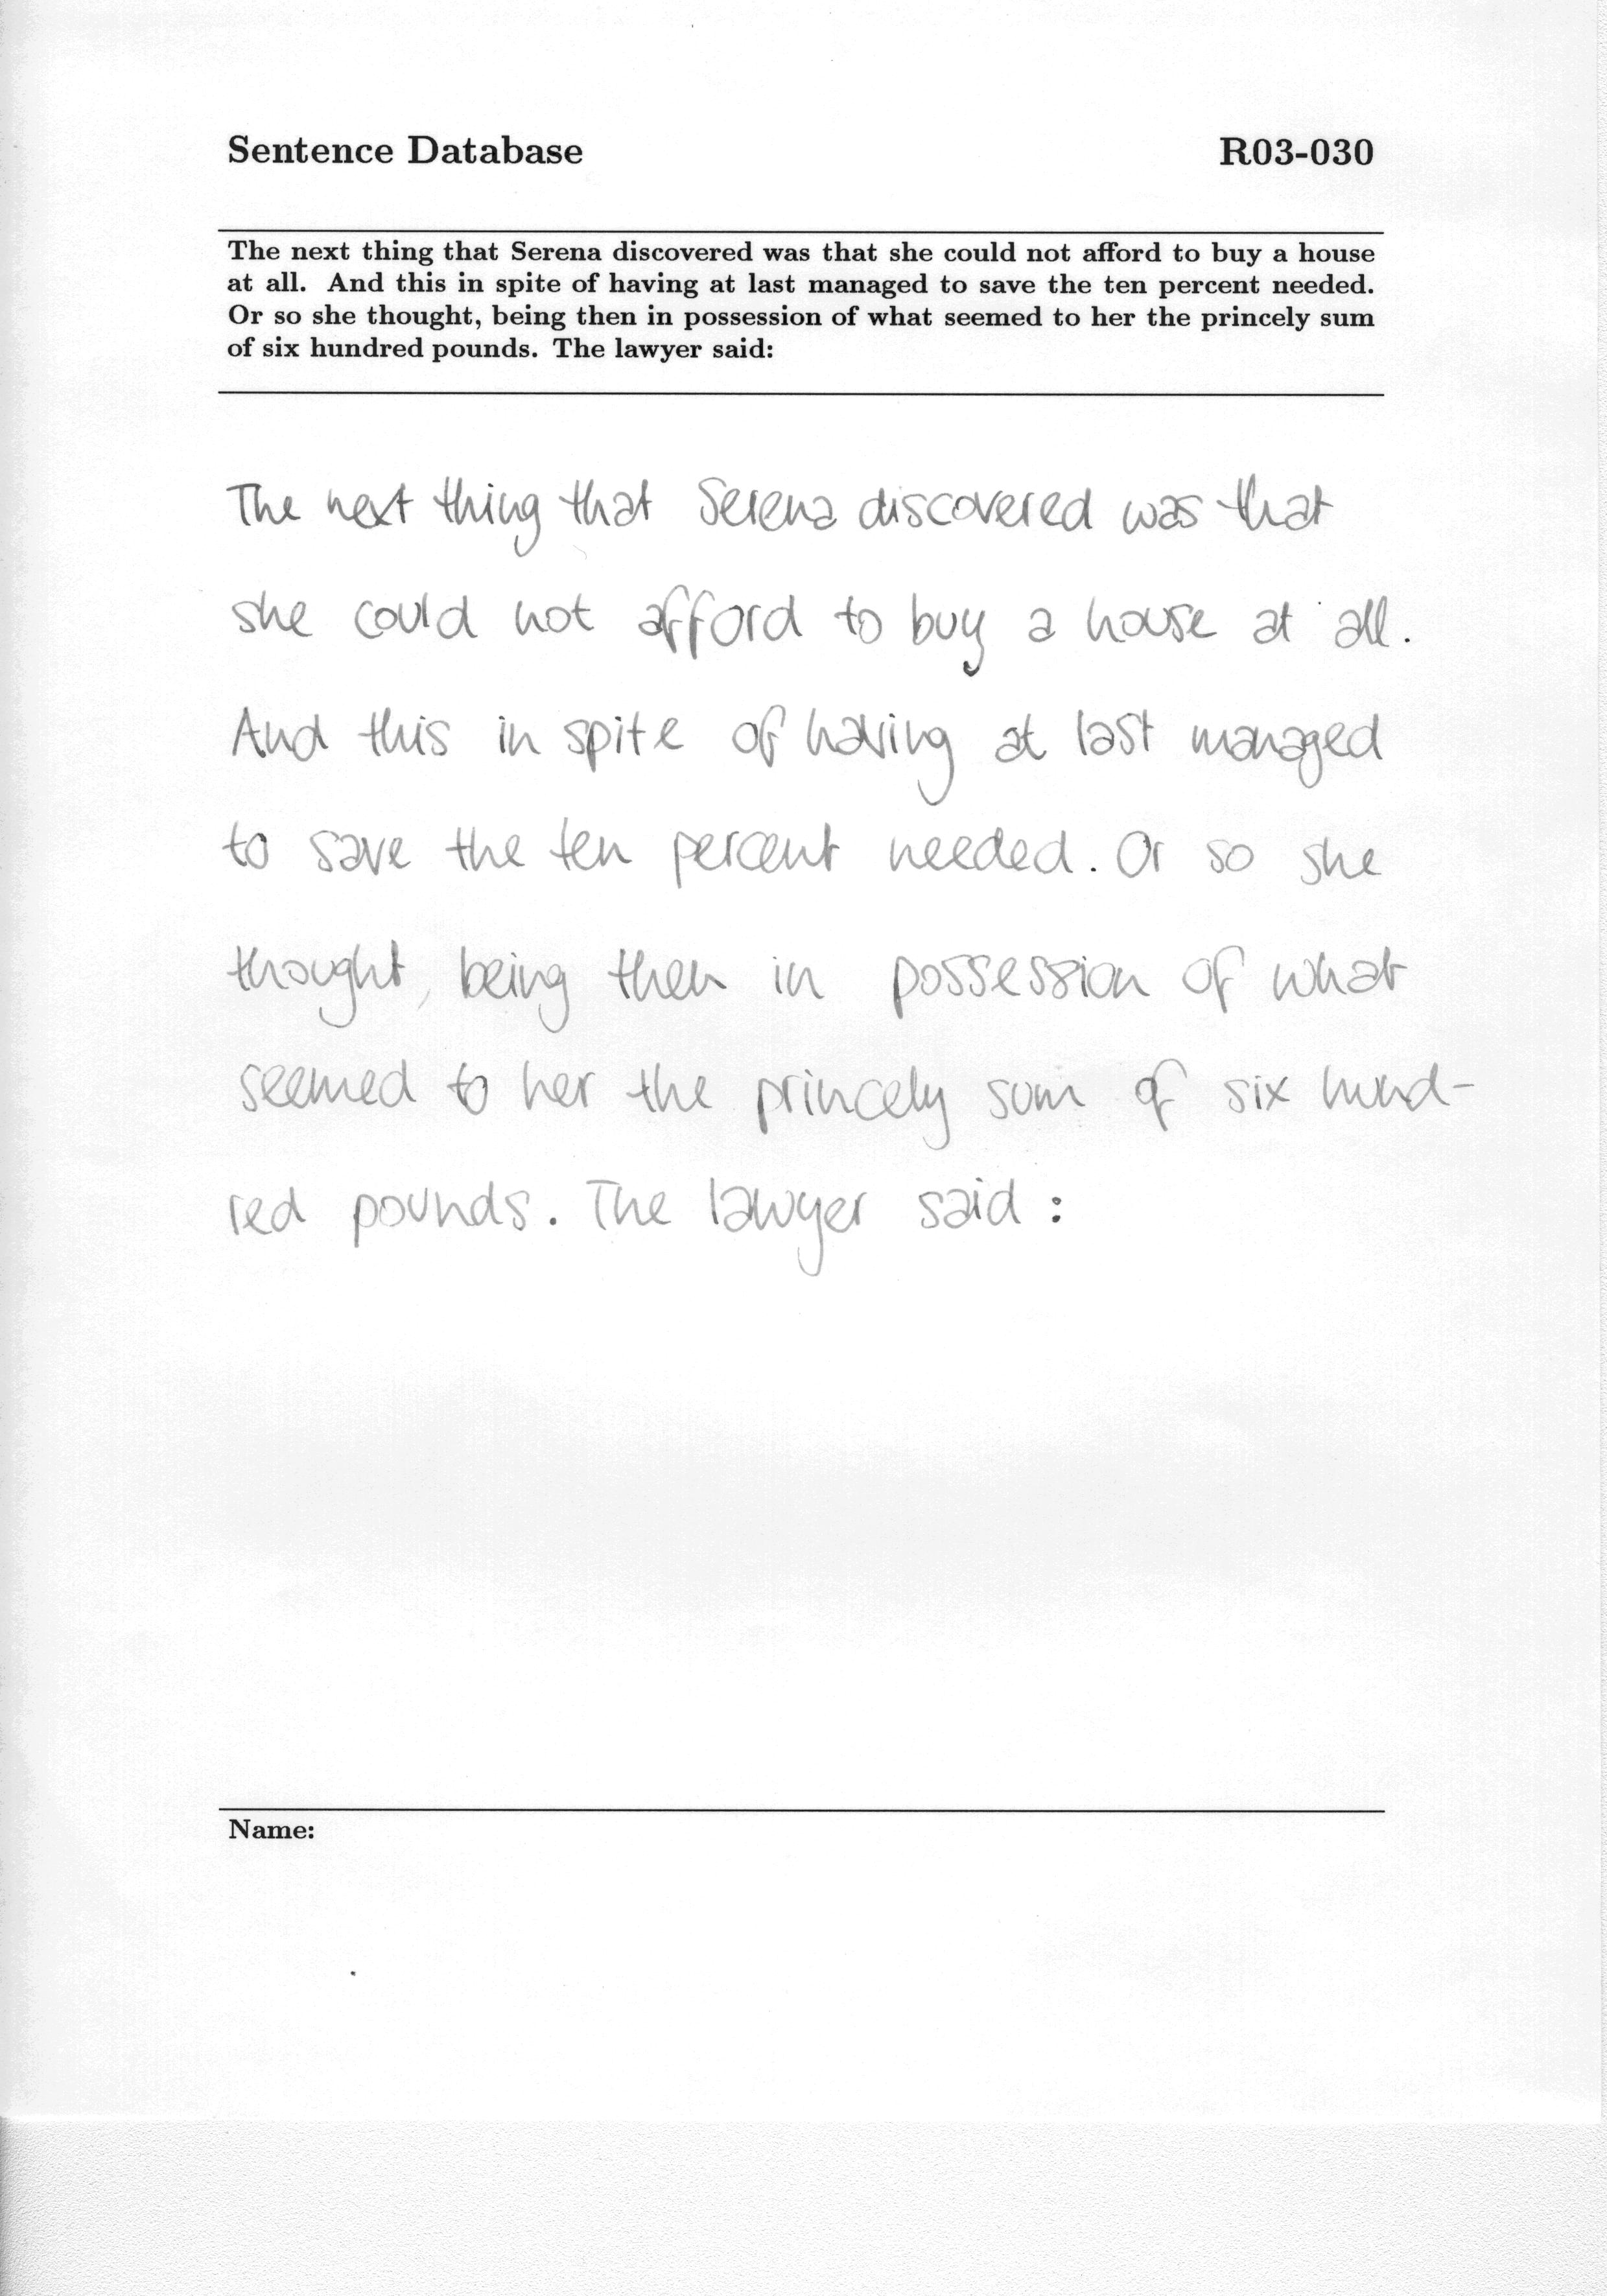 Sentence Database R03-030
The next thing that Serena discovered was that she could not afford to buy a house
at all. And this in spite of having at last managed to save the ten percent needed.
Or so she thought, being then in possession of what seemed to her the princely sum
of six hundred pounds. The lawyer said:
The next thing that Serena discovered was that
she could not afford to buy a house at all.
And this in spite of having at last managed
to save the ten percent needed. Or so she
thought, being then in possession of what
seemed to her the princely sum of six hund-
red pounds. The lawyer said :
Name: